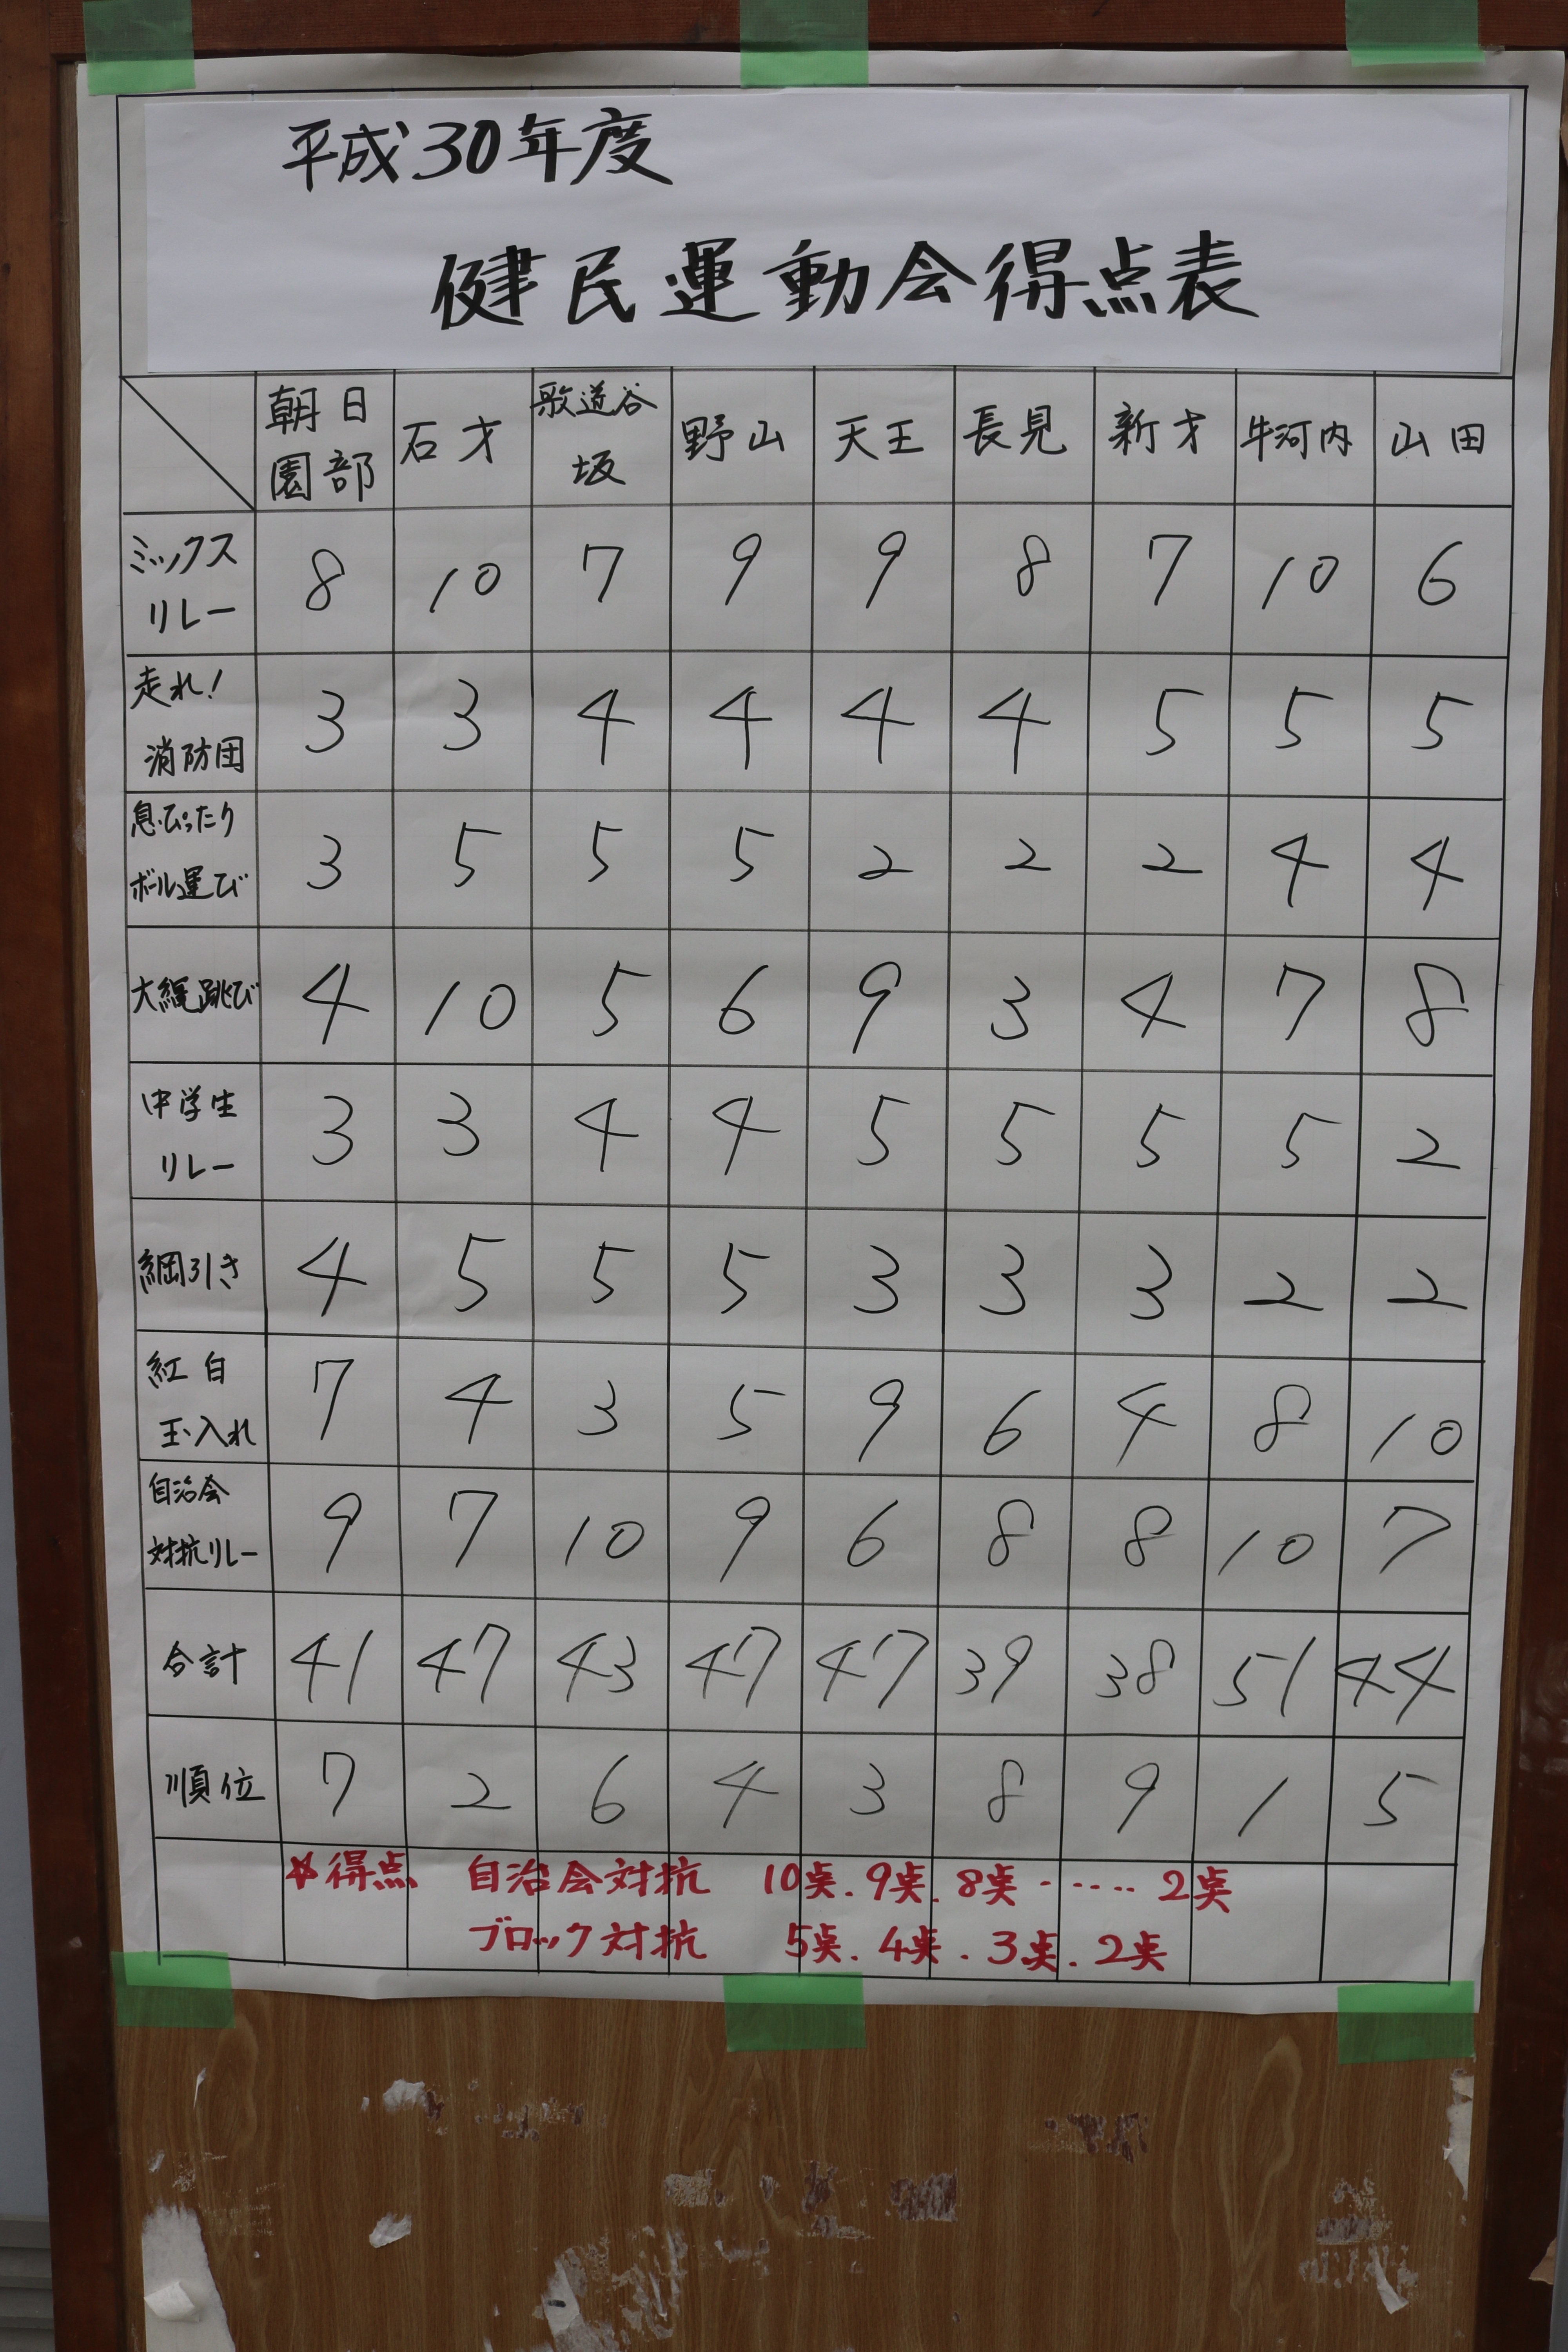 平成30年度
健民運動会得点表
朝日園部 石才 歌道谷坂 野山 天王 長見 新才 牛河内 山田
ミックスリレー 8 10 7 9 9 8 7 10 6
走れ!消防団 3 3 4 4 4 4 5 5 5
息ぴったりボール運び 3 5 5 5 2 2 2 4 4
大縄跳び 4 10 5 6 9 3 4 7 8
中学生リレー 3 3 4 4 5 5 5 5 2
綱引き 4 5 5 5 3 3 3 2 2
紅白玉入れ 7 4 3 5 9 6 4 8 10
自治会対抗リレー 9 7 10 9 6 8 8 10 7
合計 41 47 43 47 47 39 38 51 44
順位 7 2 6 4 3 8 9 1 5
☆得点 自治会対抗 10点.9点.8点・・・・・2点
ブロック対抗 5点.4点.3点.2点